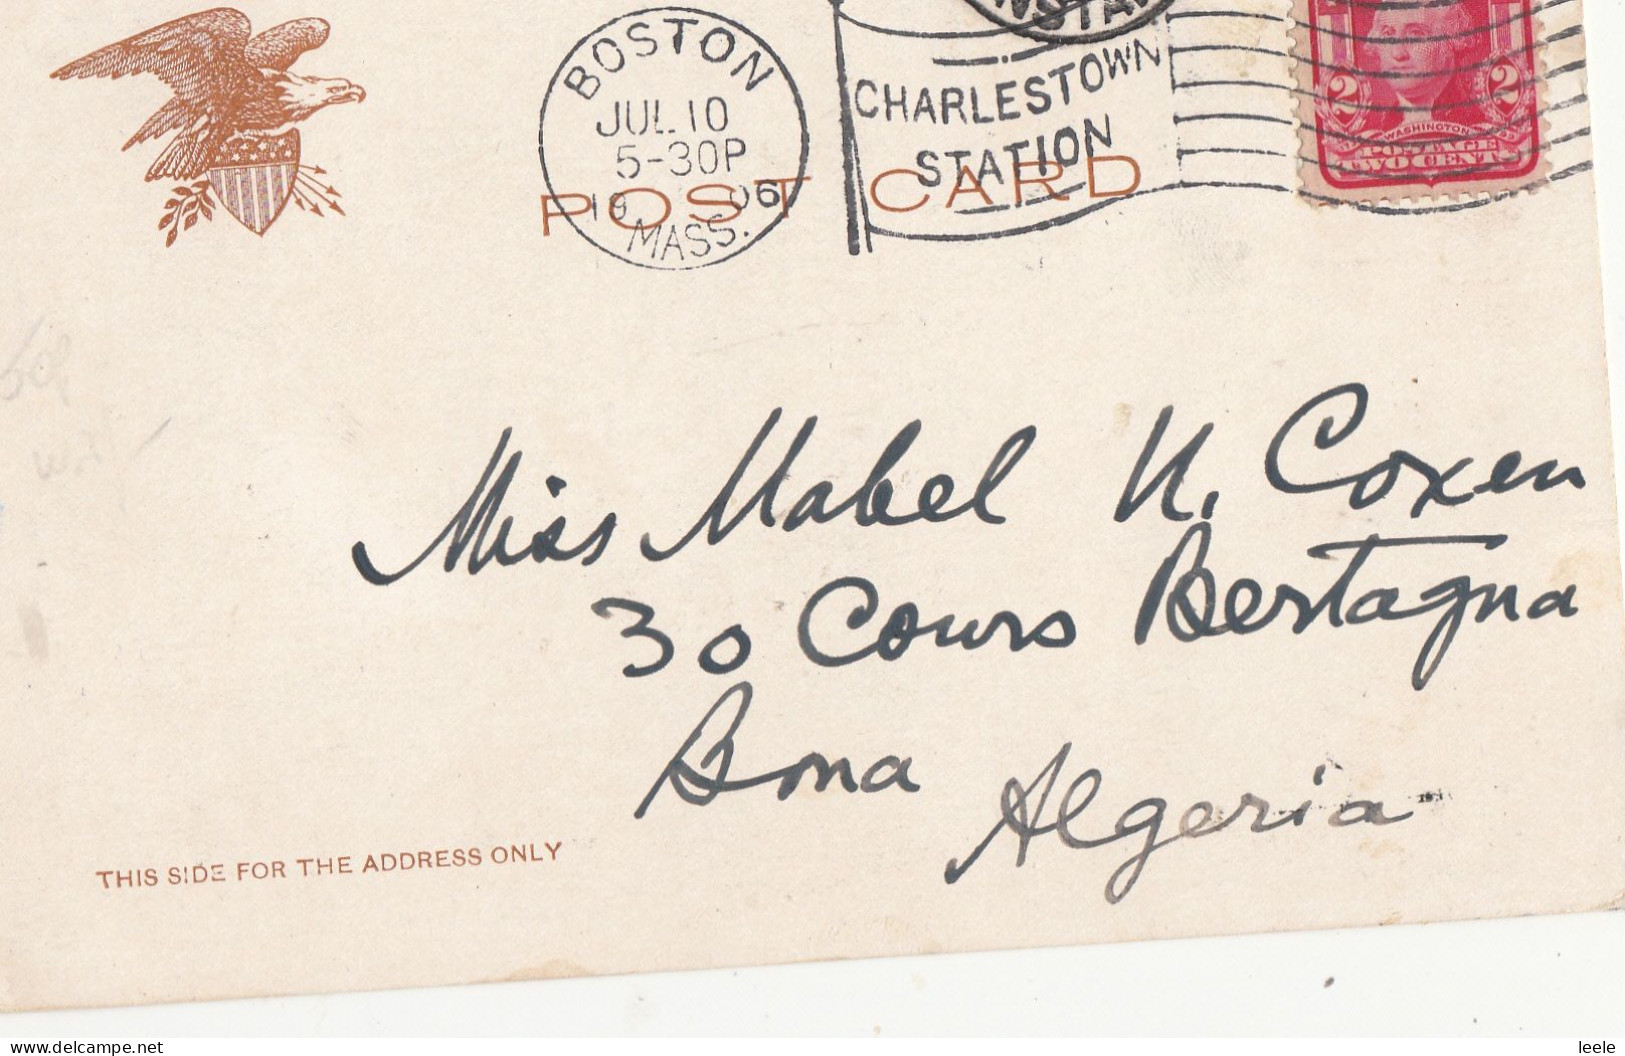 BOSTON
JUL 10
5-30P
19 06
MASS.
CHARLESTOWN
STATION
2 2
WASHINGTON
POST CARD
Miss Mabel N. Coxen
30 Cours Bertagna
Bona
Algeria
THIS SIDE FOR THE ADDRESS ONLY
https://www.delcampe.net
leele